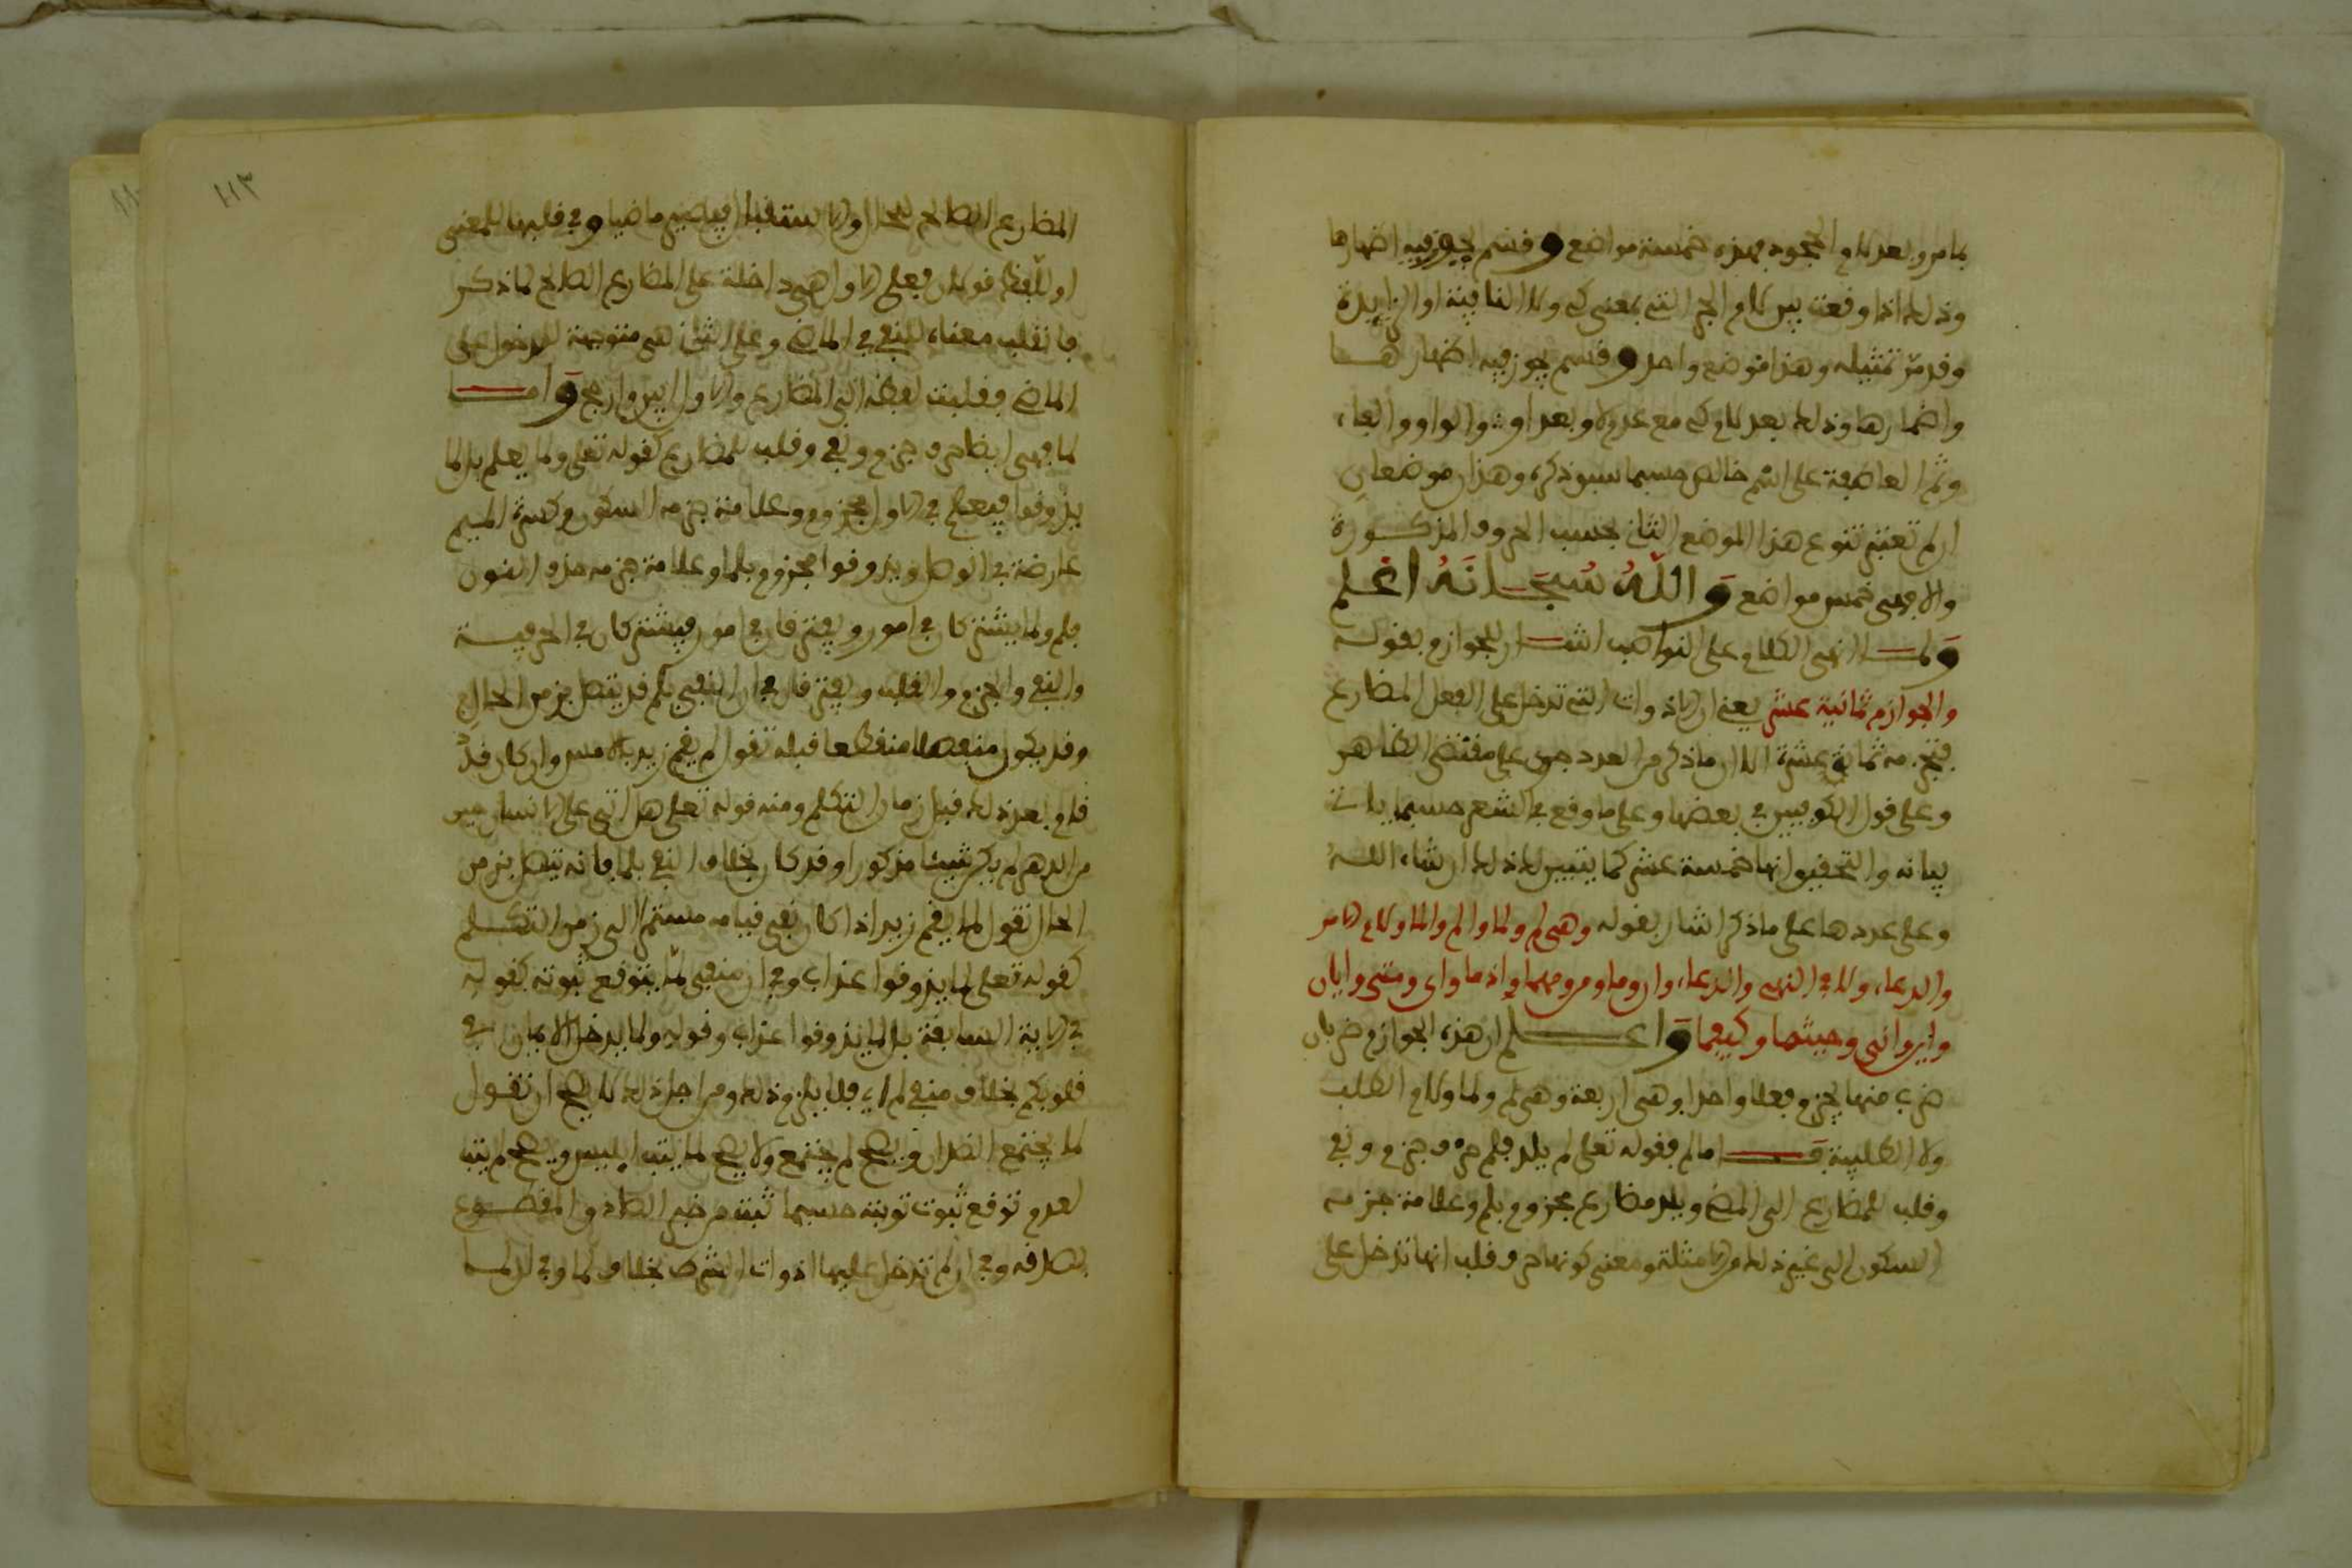 بمامر وبعد لام الجحود بهذه خمسة مواضع وقسم يجوز فيه اظهارها
وذلك اذا وقعت بين لام الجر التي بمعنى كي ولا النافية او الزايدة
وقد مر تمثيله وهذا موضع واحد وقسم يجوز فيه اظهارها
واضمارها وذلك بعد لام كي مع عدم لا وبعد او والواو والفاء
وثم العاطفة على اسم خالص حسبما سبق ذكره وهذان موضعان
ان لم تعتبر تنوع هذا الموضع الثاني بحسب الحروف المذكورة
والا فهي خمس مواضع والله سبحانه اعلم
ولما انهى الكلام على النواصب اشار للجوازم بقوله
والجوازم ثمانية عشر يعني ان الادوات التي تدخل على الفعل المضارع
فتجزمه ثمانية عشرة الا ان ما ذكر من العدد جرى على مقتضى الظاهر
وعلى قول الكوفيين في بعضها وعلى ما وقع في الشعر حسبما ياتي
بيانه والتحقيق انها خمسة عشر كما يتبين لك ذلك ان شاء الله
وعلى عددها على ما ذكر اشار بقوله وهي لم ولما والم والما ولام الامر
والدعاء ولا في النهي والدعاء وان وما ومن ومهما واذما واي ومتى وايان
واين وانى وحيثما وكيفما واعلم ان هذه الجوازم ضربان
ضرب منها يجزم فعلا واحدا وهي اربعة وهي لم ولما ولام الطلب
ولا الطلبية فاما لم فقوله تعلى لم يلد فلم حرف جزم ونفي
وقلب للمضارع الى المضي ويلد مضارع مجزوم بلم وعلامة جزمه
السكون الى غير ذلك من الامثلة ومعنى كونها حرف قلب انها تدخل على
١١٣
المضارع الصالح للحال والاستقبال فيصير ماضيا وفي قلبها للمعنى
او للفظ قولان فعلى الاول هي داخلة على المضارع الصالح لما ذكر
فانقلب معناه للنفي في الماضي وعلى الثاني هي متوجهة للدخول على
الماضي فقلبت لفظه الى المضارع والاول ابين وارجح واما
لما فهي ايضا حرف جزم ونفي وقلب للمضارع كقوله تعلى ولما يعلم بل لما
يذوقوا فيعلم في الاول مجزوم وعلامة جزمه السكون وكسرة الميم
عارضة في الوصل ويذوقوا مجزوم بلما وعلامة جزمه حذف النون
فلم ولما يشتركان في امور ويفترقان في امور فيشتركان في الحرفية
والنفي والجزم والقلب ويفترقان في ان النفي بلم قد يتصل بزمن الحال
وقد يكون منفصلا منقطعا قبله تقول لم يقم زيد بالامس وان كان قد
قام بعد ذلك قبل زمان التكلم ومنه قوله تعلى هل اتى على الانسان حين
من الدهر لم يكن شيئا مذكورا وقد كان بخلاف النفي بلما فانه يتصل بزمن
الحال تقول لما يقم زيد اذا كان نفي قيامه مستمرا الى زمن التكلم
كقوله تعلى لما يذوقوا عذاب وفي ان منفي لما يتوقع ثبوته كقوله
في الاية السابقة بل لما يذوقوا عذاب وقوله ولما يدخل الايمان في
قلوبكم بخلاف منفي لم اي فلا يلزم ذلك ومن اجل ذلك لا يصح ان تقول
لما يجتمع الضدان ويصح لم يجتمع ولا يصح لما يتب ابليس ويصح لم يتب
لعدم توقع ثبوت توبته حسبما ثبت من خبر الصادق المقطوع
بصدقه وفي ان لم تدخل عليها ادوات الشرط بخلاف لما وفي ان لما